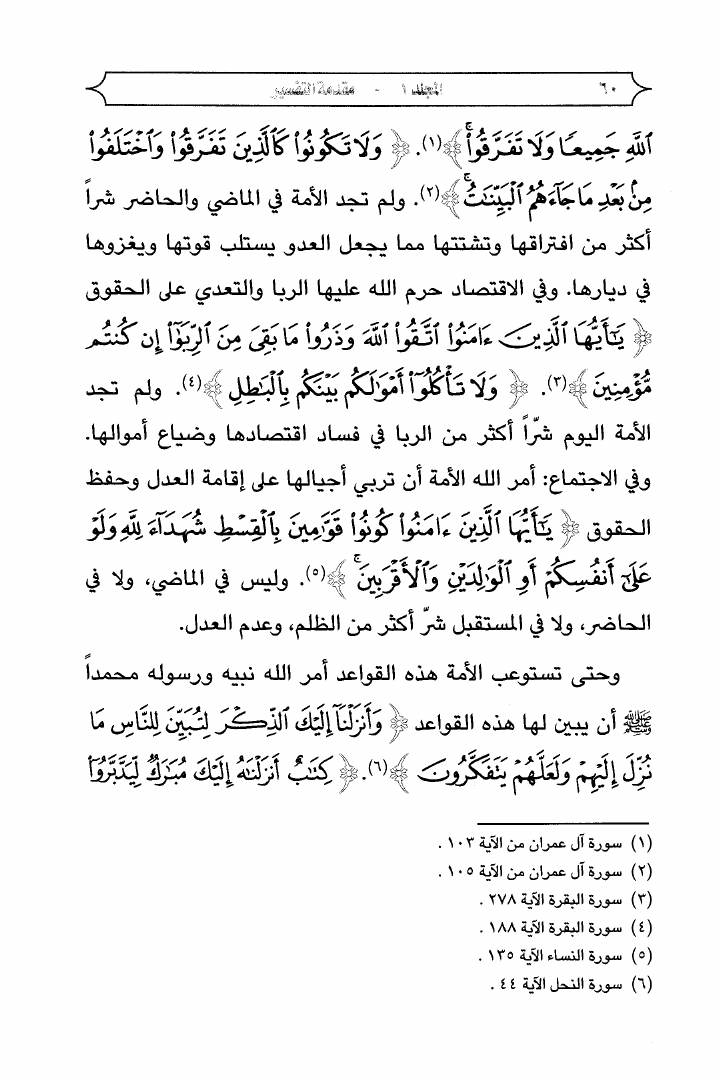 ٦٠ المجلد ١ - مقدمة التفسير
ٱللَّهِ جَمِيعًا وَلَا تَفَرَّقُوا۟ ۚ﴾(١). ﴿ وَلَا تَكُونُوا۟ كَٱلَّذِينَ تَفَرَّقُوا۟ وَٱخْتَلَفُوا۟
مِنۢ بَعْدِ مَا جَآءَهُمُ ٱلْبَيِّنَـٰتُ ۚ﴾(٢). ولم تجد الأمة في الماضي والحاضر شراً
أكثر من افتراقها وتشتتها مما يجعل العدو يستلب قوتها ويغزوها
في ديارها. وفي الاقتصاد حرم الله عليها الربا والتعدي على الحقوق
﴿ يَـٰٓأَيُّهَا ٱلَّذِينَ ءَامَنُوا۟ ٱتَّقُوا۟ ٱللَّهَ وَذَرُوا۟ مَا بَقِىَ مِنَ ٱلرِّبَوٰٓا۟ إِن كُنتُم
مُّؤْمِنِينَ ﴾(٣). ﴿ وَلَا تَأْكُلُوٓا۟ أَمْوَٰلَكُم بَيْنَكُم بِٱلْبَـٰطِلِ ﴾(٤). ولم تجد
الأمة اليوم شرّاً أكثر من الربا في فساد اقتصادها وضياع أموالها.
وفي الاجتماع: أمر الله الأمة أن تربي أجيالها على إقامة العدل وحفظ
الحقوق ﴿ يَـٰٓأَيُّهَا ٱلَّذِينَ ءَامَنُوا۟ كُونُوا۟ قَوَّٰمِينَ بِٱلْقِسْطِ شُهَدَآءَ لِلَّهِ وَلَوْ
عَلَىٰٓ أَنفُسِكُمْ أَوِ ٱلْوَٰلِدَيْنِ وَٱلْأَقْرَبِينَ ۚ﴾(٥). وليس في الماضي، ولا في
الحاضر، ولا في المستقبل شرّ أكثر من الظلم، وعدم العدل.
وحتى تستوعب الأمة هذه القواعد أمر الله نبيه ورسوله محمداً
ﷺ أن يبين لها هذه القواعد ﴿ وَأَنزَلْنَآ إِلَيْكَ ٱلذِّكْرَ لِتُبَيِّنَ لِلنَّاسِ مَا
نُزِّلَ إِلَيْهِمْ وَلَعَلَّهُمْ يَتَفَكَّرُونَ ﴾(٦). ﴿ كِتَـٰبٌ أَنزَلْنَـٰهُ إِلَيْكَ مُبَـٰرَكٌ لِّيَدَّبَّرُوٓا۟
(١) سورة آل عمران من الآية ١٠٣ .
(٢) سورة آل عمران من الآية ١٠٥ .
(٣) سورة البقرة الآية ٢٧٨ .
(٤) سورة البقرة الآية ١٨٨ .
(٥) سورة النساء الآية ١٣٥ .
(٦) سورة النحل الآية ٤٤ .